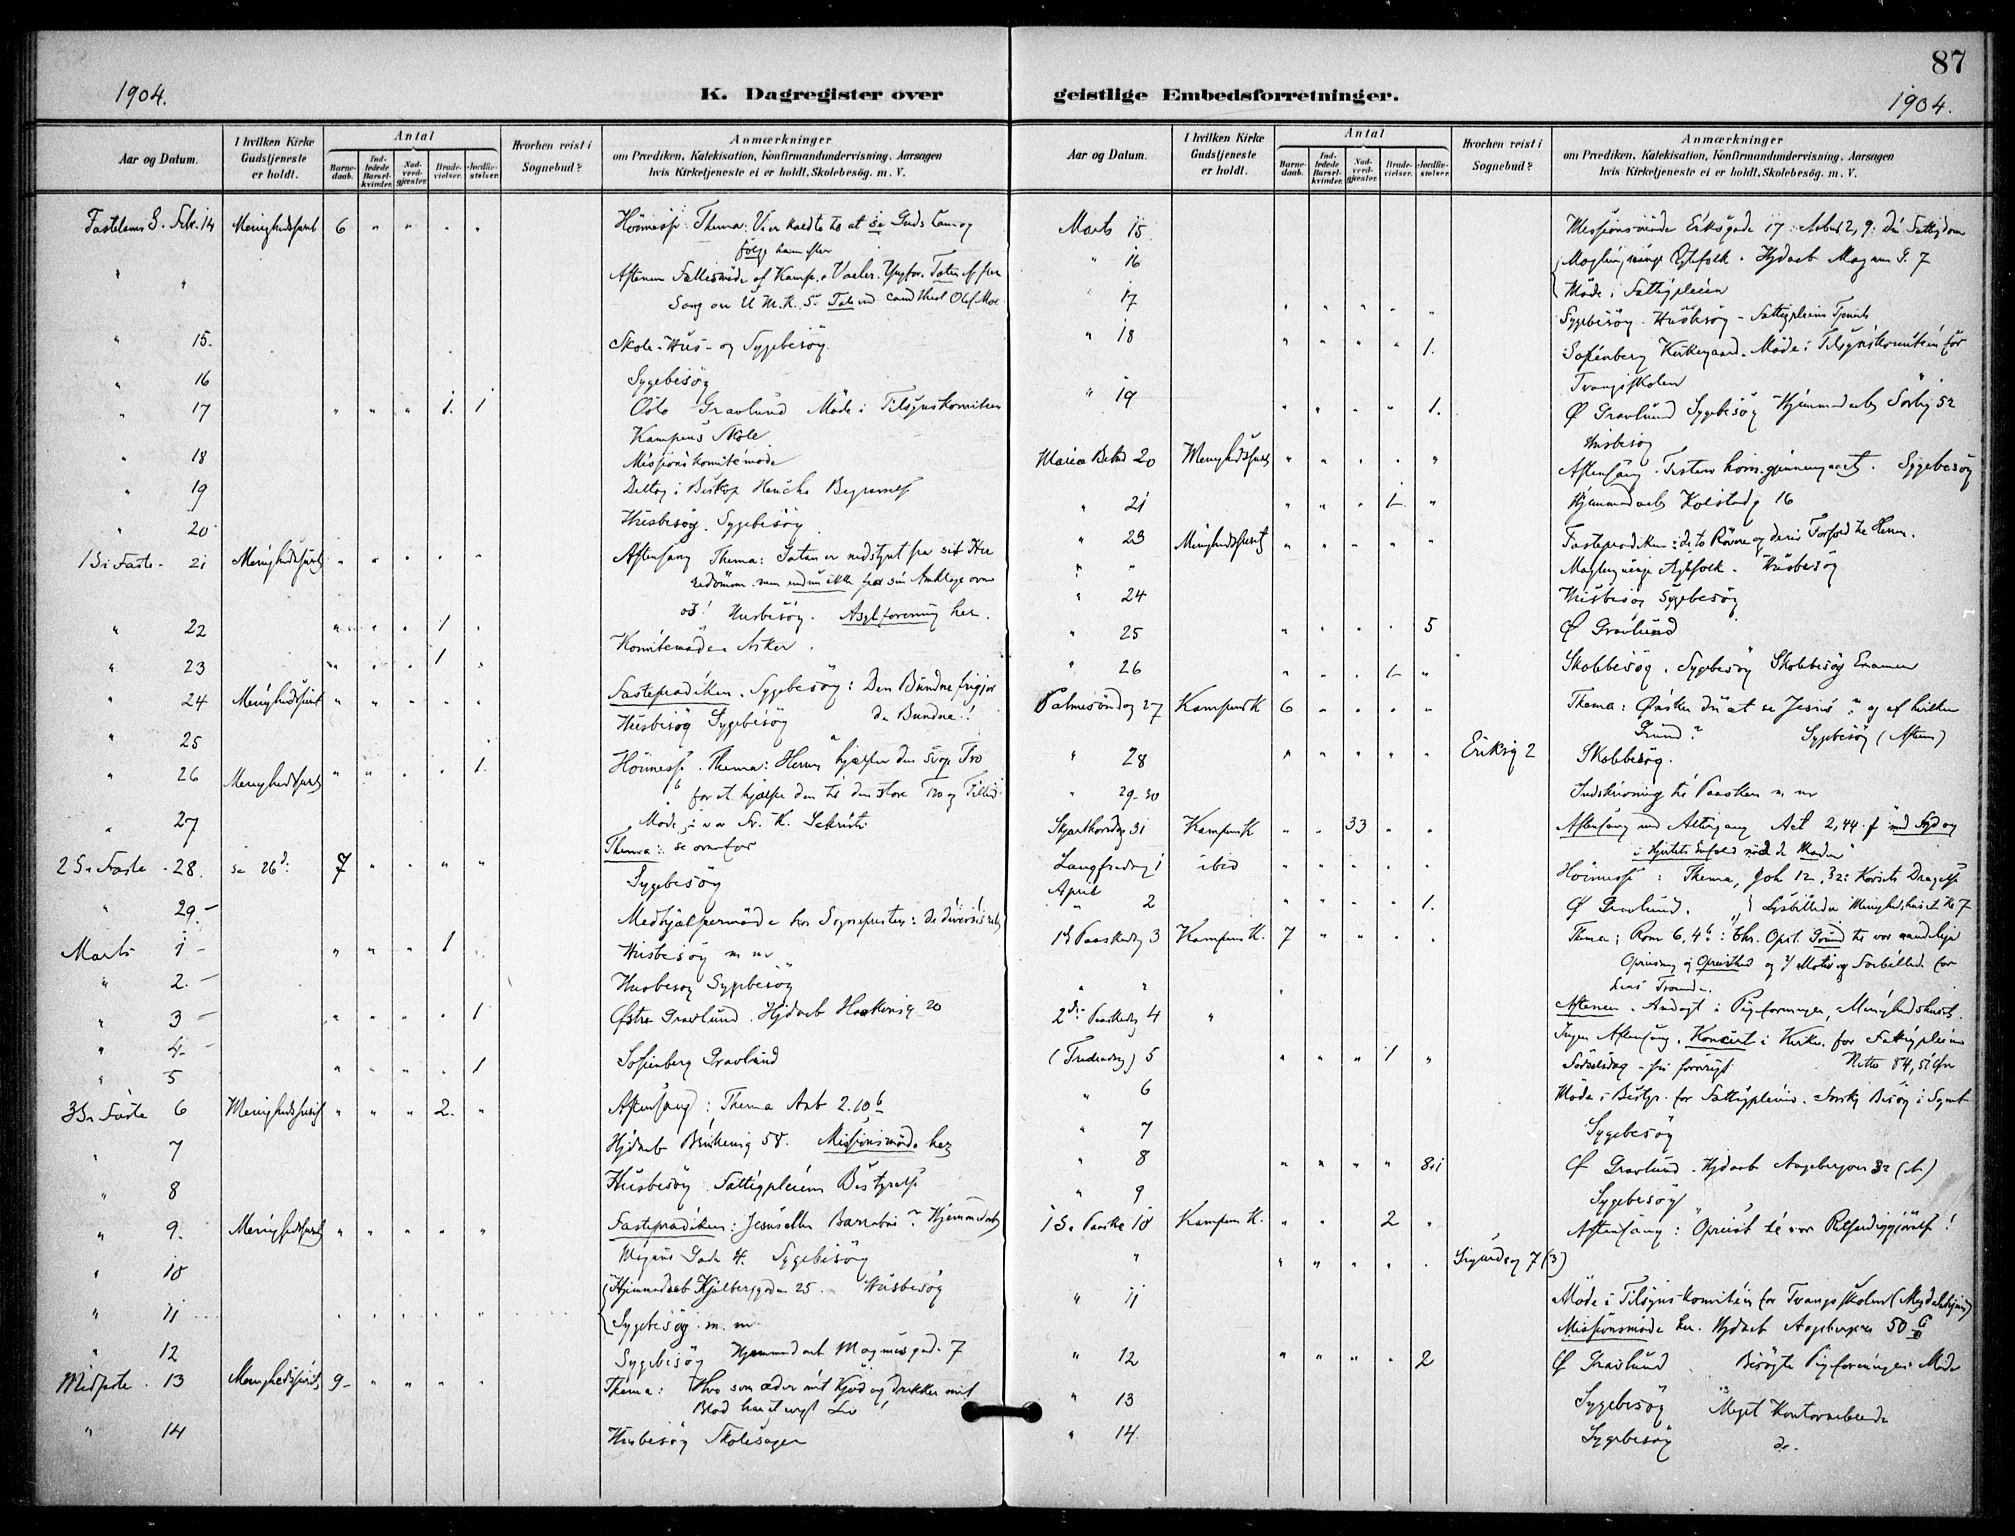 87
1904.
K. Dagregister over geistlige Embedsforretninger.
1904.
Aar og Datum.
I hvilken Kirke Gudstjeneste er holdt.
Antal
Barne-daab.
Ind-ledede Barsel-kvinder.
Nad-verd-gjester.
Brude-vielser.
Jordfæ-stelser.
Hvorhen reist i Sognebud?
Anmærkninger
om Prædiken, Katekisation, Konfirmandundervisning, Aarsagen
hvis Kirketjeneste ei er holdt, Skolebesög. m. V.
Fastelavns S. Febr. 14 Menighedshuset 6 " " " " Höimesse. Thema: Vi er kaldte til at se Guds Lam og
følge ham efter
" " Aftenen Fællesmöde af Kamp. & Vaaler.
Sang on U.M.K.S. Tale ved cand theol Olaf Moe
" 15. Skole-Hus- og Sygebesög
" 16 Sygebesög
" 17 " " " 1. 1 Oslo Gravlund Möde i Tilsynskomiteen
Kampens Skole
" 18 Missionskomitémöde
" 19 Deltog i Biskop Begravelse
" 20 Husbesög. Sygebesög
1 S i Faste - 21 Menighedshuset " " " " " Aftensang Thema: Satan er nedstyrtet fra sit Her
redömme men endnu ikke fra sin Anklage over
os! Husbesög. Asylforening her.
" 22 " " " 1 " Komitemöde Asker.
" 23 " " " 1 "
" 24 Menighedshuset " " " " " Fasteprædiken. Sygebesög: Den Bundne frigjør
de Bundne!
" 25 Husbesög Sygebesög
" 26 Menighedshuset " " " " 1. Höimesse. Thema: Herren hjælper den svage Tro
for at hjælpe den til den store Tro og
" 27 Möde
2 S i Faste - 28. se 26d: 7 " " " " Thema: se ovenfor
Sygebesög
" 29. - Medhjælpermöde hos Sognepresten:
Marts 1 - " " " 1 " Husbesög m m
" 2. - Husbesög Sygebesög
" 3 - " " " " 1 Østre Gravlund. Hjdaab Haakonsg 20
" 4 -
" 5 " " " " 1 Sofienberg Gravlund
3 S i Faste 6 Menighedshuset " " " 2. " Aftensang: Thema Aab 2.10b
" 7 Hjdaab 58. Missionsmöde her
" 8 Husbesög. Fattigpleiens Bestyrelse
" 9. Menighedshuset " " " " " Fasteprædiken: Jesus eller Barrabas? Hjemmedaab
Magnus Gade 4. Sygebesög
" 10 Hjemmedaab Kjølberggaden 25. Husbesög
" 11 " " " " " Sygebesög m. m
" 12 Sygebesög Hjemmedaab Magnusgade 7
Midfaste. 13 Menighedshuset 9 " " " " Thema: Hvo som æder mit Kjød og drikker mit
Blod har et evigt Liv!
" 14 Husbesög Skolesager
Aar og Datum.
I hvilken Kirke Gudstjeneste er holdt.
Antal
Barne-daab.
Ind-ledede Barsel-kvinder.
Nad-verd-gjester.
Brude-vielser.
Jordfæ-stelser.
Hvorhen reist i Sognebud?
Anmærkninger
om Prædiken, Katekisation, Konfirmandundervisning, Aarsagen
hvis Kirketjeneste ei er holdt, Skolebesög. m. V.
Marts 15 Missionsmöde Eriksgade 17: Aabenb 2, 9: Din Fattigdom
" 16 Hjdaab Magnus G. 7
Möde i Fattigpleien
" 17 " " " " " Sygebesög. Husbesög - Fattigpleiens Tjeneste
" 18 " " " " 1. Sofienberg Kirkegaard. Möde i Tilsynskomiteen for
Tvangsskolen
" 19 " " " " 1. Ø Gravlund Sygebesög Hjemmedaab Sörbyg 52
Husbesög
Maria Bebud 20 Menighedshuset " " " " " Aftensang. Texten hom. gjennemgaaet. Sygebesög
" 21 " " " 1. " Hjemmedaab Kolstadg 16
" 23 Menighedshuset " " " " " Fasteprædiken: de to Røvere og deres Forhold til Herren.
" " Husbesög
" 24 Husbesög Sygebesög
" 25 " " " " 5 Ø Gravlund
" 26 " " " 1 " Skolebesög. Sygebesög Skolebesög Examen
Palmesöndag 27 Kampens K 6 " " " " Thema: Ønsker du at se Jesus? og af hvilken
Grund? Sygebesög (Aften)
" 28 " " " " " Eriksg 2 Skolebesög.
" 29-30 Indskrivning til Paasken m m
Skjærthorsdag 31 Kampens K " " 33 " " Aftensang med Altergang Act 2,44. f med Fryd og
i Hjertets Enfold nød de Maden"
Langfredag 1 ibid " " " " " Höimesse: Thema, Joh 12.32: Korsets Dragelse
April
" 2 " " " " 1. Ø Gravlund. Lysbilleder Menighedshuset Kl 7
1ste Paaskedag 3 Kampens K. 7 " " " " Thema: Rom 6,4b: Chr. Opst. Grund til vor aandelige
Opreisning og Opreisthed og Motiv og Forbillede for
" "
2den Paaskedag 4 " Aftenen. Andagt i Pigeforeningen, Menighedshuset.
Ingen Aftensang. Koncert i Kirken for Fattigpleien
(Trediedag) 5 " " " 1 " Födselsdag - fri forövrigt. Netto 84,51 Kr
" 6 Möde i Bestyr. for Fattigpleien.
" 7 Sygebesög
" 8 " " " " 8+1 Ø Gravlund. Hjdaab Aagebergvei 32
" 9 Sygebesög
1 S. e Paaske 10 Kampens K. " " " 2 " Aftensang: "Opreist til vor Retfærdiggjörelse!
" " " " " " Sigurdsg 7 (3)
" 11 Möde i Tilsynskomitéen for Tvangsskolen
Missionsmöde her. Hjdaab Aagebergvei 50
" 12 " " " " 2 Ø Gravlund. Besögte Pigeforeningens Möde
" 13 Sygebesög Meget Kontorarbeide
" 14. Sygebesög do.